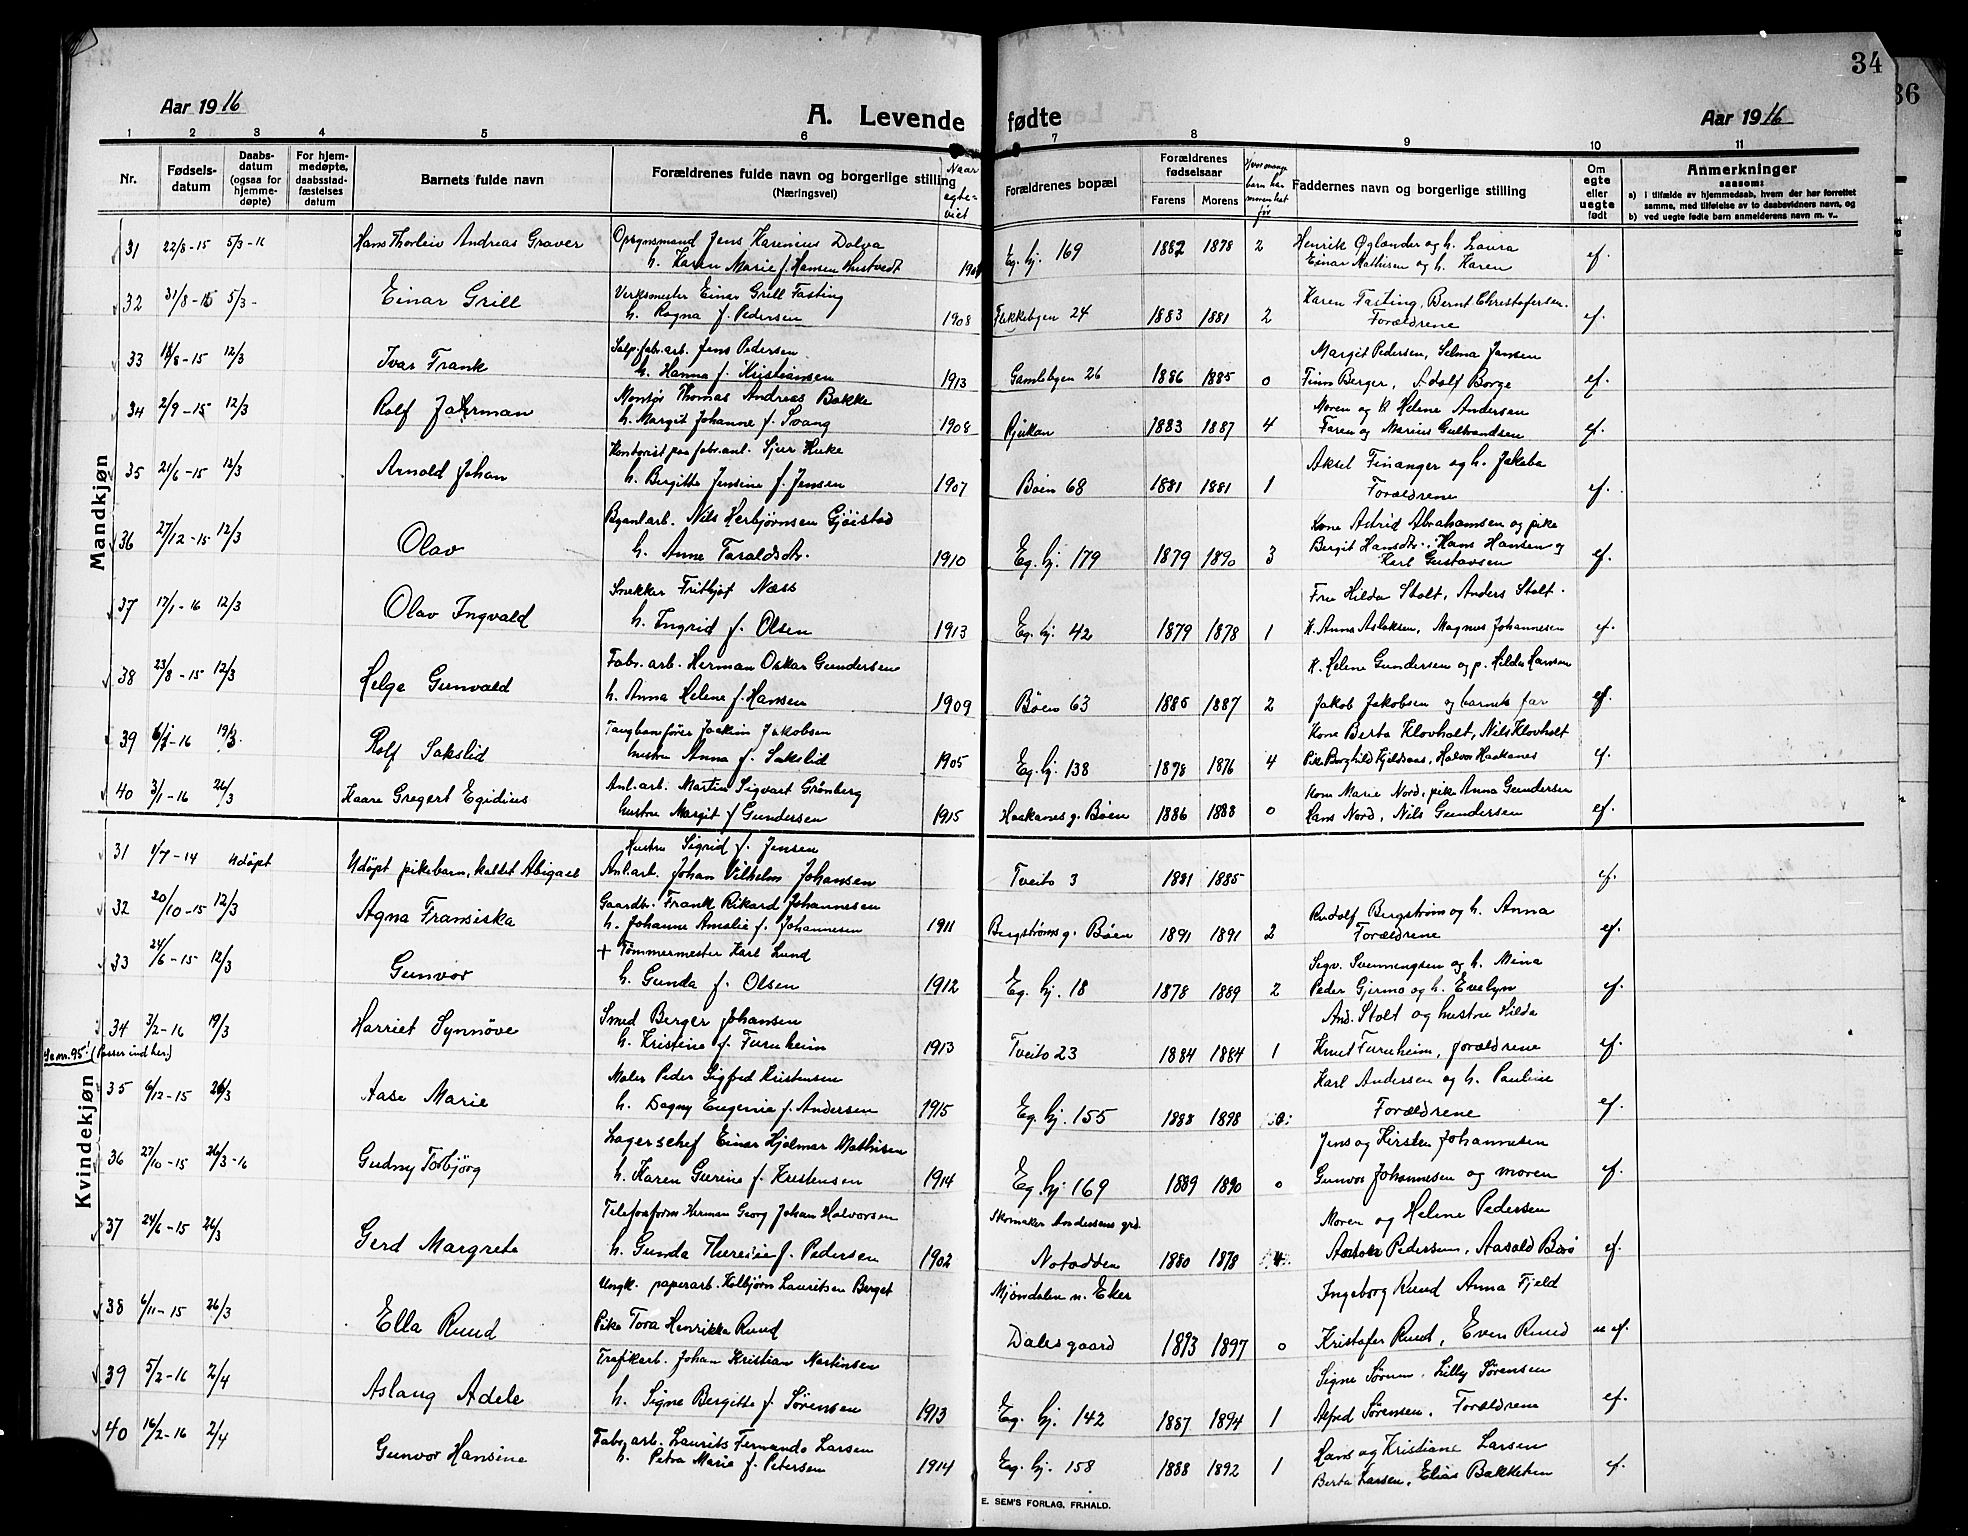 34
36
Aar 1916
A. Levende fødte
Aar 1916
1 2 3 4 5 6 7 8 9 10 11
Nr.
Fødsels-
datum
Daabs-
datum
(ogsaa for
hjemme-
døpte)
For hjem-
medøpte,
daabsstad-
fæstelses
datum
Barnets fulde navn
Forældrenes fulde navn og borgerlige stilling
(Næringsvei)
Naar
egte-
viet
Forældrenes bopæl
Forældrenes
fødselsaar
Farens Morens
Hvor mange
barn har
moren hat
før
Faddernes navn og borgerlige stilling
Om
egte
eller
uegte
født
Anmerkninger
saasom:
a) i tilfælde av hjemmedaab, hvem der har forrettet
samme, med tilføielse av to daabsvidners navn, og
b) ved uegte fødte barn anmelderens navn m. v..
Mandkjøn
31 22/8-15 5/3-16 Hans Thorleiv Andreas Graver Opsynsmand Jens Karenius Dolva Eg. hj. 169 1882 1878 2 Henrik Øglænder og h. Laura ef.
h. Karen Marie f. Hansen Hustvedt Einar Mathisen og h. Karen
32 31/8-15 5/3- Einar Grill Verksmester Einar Grill Fasting Karen Fasting, Bernt Christofersen.
h. Ragna f. Pedersen 1908 Flekkebyen 24 1883 1881 2 Forældrene ef.
33 18/8-15 12/3 Ivar Frank Salp.fabr.arb. Jens Pedersen Margit Pedersen, Selma Jansen
h. Hanna f. Kristiansen 1913 Gamlebyen 26 1886 1885 0 Finn Berger, Adolf Borge ef.
34 2/9-15 12/3 Rolf Montør Thomas Andreas Bakke Moren og Helene Andersen
h. Margit Johanne f. Svang 1908 Rjukan 1883 1887 4 Faren og Marius Gulbrandsen ef.
35 21/6-15 12/3 Arnold Johan Kontorist paa fabr.anl. Sjur Huke Aksel Finanger og h. Jakoba
h. Bergitte Jensine f. Jensen 1907 Bøen 68 1881 1881 1 Forældrene ef.
36 27/12-15 12/3 Olav Bganl.arb. Nils Herbjørnsen Gjøistad Kone Astrid Abrahamsen og pike
h. Anne Taraldsdtr. 1910 Eg. hj. 179 1879 1890 3 Bergit Hansdtr. Hans Hansen og ef.
Karl Gustavsen
37 17/1-16 12/3 Olav Ingvald Snekker Fritjof Næss Fru Hilda Stolt, Anders Stolt.
h. Ingrid f. Olsen 1913 Eg. hj. 42 1879 1878 1 K. Anna Aslaksen, Magnus Johannesen ef.
38 23/8-15 12/3 Helge Gunvald Fabr.arb. Herman Oskar Gundersen K. Helene Gundersen og p. Hilda Hansen
h. Anna Helene f. Hansen 1909 Bøen 63 1885 1887 2 Jakob Jakobsen og barnets far ef.
39 19/3 Rolf Sakslid Taugbanefører Joakim Jakobsen Kone Berta Klovholt, Nils Klovholt
hustru Anna f. Sakslid 1905 Eg. hj. 138 1878 1876 4 Pike Borghild Kjeldsaas, Halvor Haakanes ef.
40 3/1-16 26/3 Kaare Gregert Egidius Anl.arb. Martin Sigvart Grønberg Kone Marie Nord, pike Anna Gundersen
hustru Margit f Gundersen 1915 Haakanes g. Bøen 1886 1888 0 Hans Nord, Nils Gundersen ef.
Kvindekjøn
31 1/7-14 Udøpt Udøpt pikebarn, kaldet Abigael Hustru Sigrid f. Jensen
Anl.arb. Johan Vilhelm Johansen Tveito 3 1881 1885 ef.
32 20/10-15 12/3 Agna Fransiska Gaardbr. Frank Rikard Johannesen Rudolf Bergstrøm og h. Anna
h. Johanne Amalie f. Johannesen 1911 Bergstrøms g. Bøen 1891 1891 2 Forældrene ef.
33 24/6-15 12/3 Gunvor + Tømmermester Karl Lund Sigv. Svenningsen og h. Mina
h. Gunda f. Olsen 1912 Eg. hj. 18 1878 1889 2 Peder Gjermo og h. Evelyn ef.
34 3/2-16 19/3 Harriet Synnøve Smed Berger Johansen And. Stolt og hustru Hilda
h. Kristine f. Furuheim 1913 Tveito 23 1884 1884 1 Knut Furuheim, forældrene ef.
95 (Passer ind her.)
35 6/12-15 26/3 Aase Marie Maler Peder Sigfred Kristensen Karl Andersen og h. Pauline
h. Dagny Eugenia f. Andersen 1915 Eg. hj. 155 1888 1898 0 Forældrene ef.
36 27/10-15 26/3-16 Gudny Torbjørg Lagerschef Einar Hjalmar Mathisen Jens og Kirsten Johannesen
h. Karen Gurine f. Kristensen 1914 Eg hj 169 1889 1890 0 Gunvor Johannesen og moren ef.
37 24/6-15 26/3 Gerd Margrete Telefonform. Herman Georg Johan Halvorsen Skomaker Andersens grd. Moren og Helene Pedersen
h. Gunda Theresie f. Pedersen 1902 Notodden 1880 1878 4 Pedersen, Aasold Bøsø ef.
38 6/11-15 26/3 Ella Ruud Ungk. paperarb. Kolbjørn Lauritsen Berget Mjøndalen n. Eker Ingeborg Ruud Anna Fjeld
Pike Tora Henrikka Ruud Dalesgaard 1893 1897 0 Kristofer Ruud, Even Ruud uef.
39 5/2-16 2/4 Aslaug Adele Trafikarb. Johan Kristian Martinsen Signe Sørum, Lilly Sørensen
h. Signe Bergitte f. Sørensen 1913 Eg. hj. 142 1887 1894 1 Alfred Sørensen. Forældrene ef.
40 16/2-16 2/4 Gunvor Hansine Fabr.arb. Laurits Fernando Larsen Hans og Kristiane Larsen
h. Petra Marie f. Petersen 1914 Eg. hj. 158 1888 1892 1 Berta Larsen, Elias Bakketun ef.
E. SEM'S FORLAG, FR.HALD.